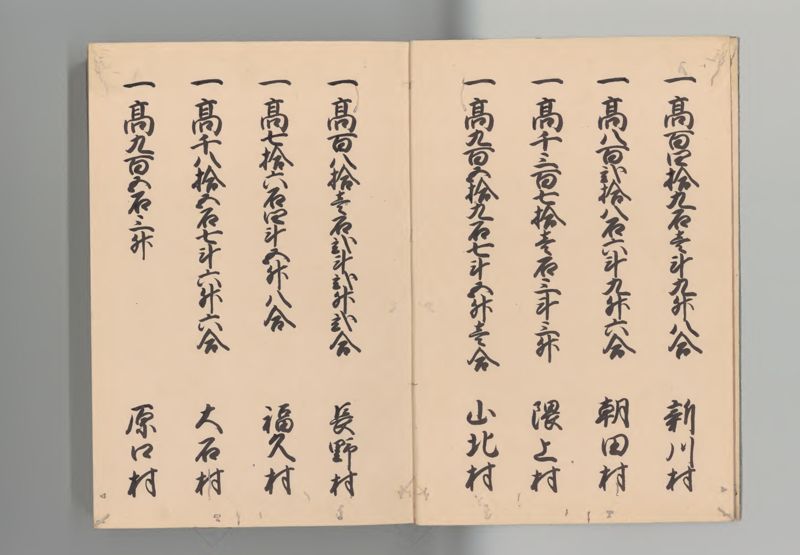 一高百四拾九石壱斗九升八合 新川村
一高八百弐拾八石六斗九升六合 朝田村
一高千三百七拾壱石三斗三升 隈上村
一高九百五拾九石七斗五升壱合 山北村
一高百八拾壱石弐斗弐升弐合 長野村
一高七拾六石四斗五升八合 福久村
一高千八拾五石七斗六升六合 大石村
一高九百五石三升 原口村